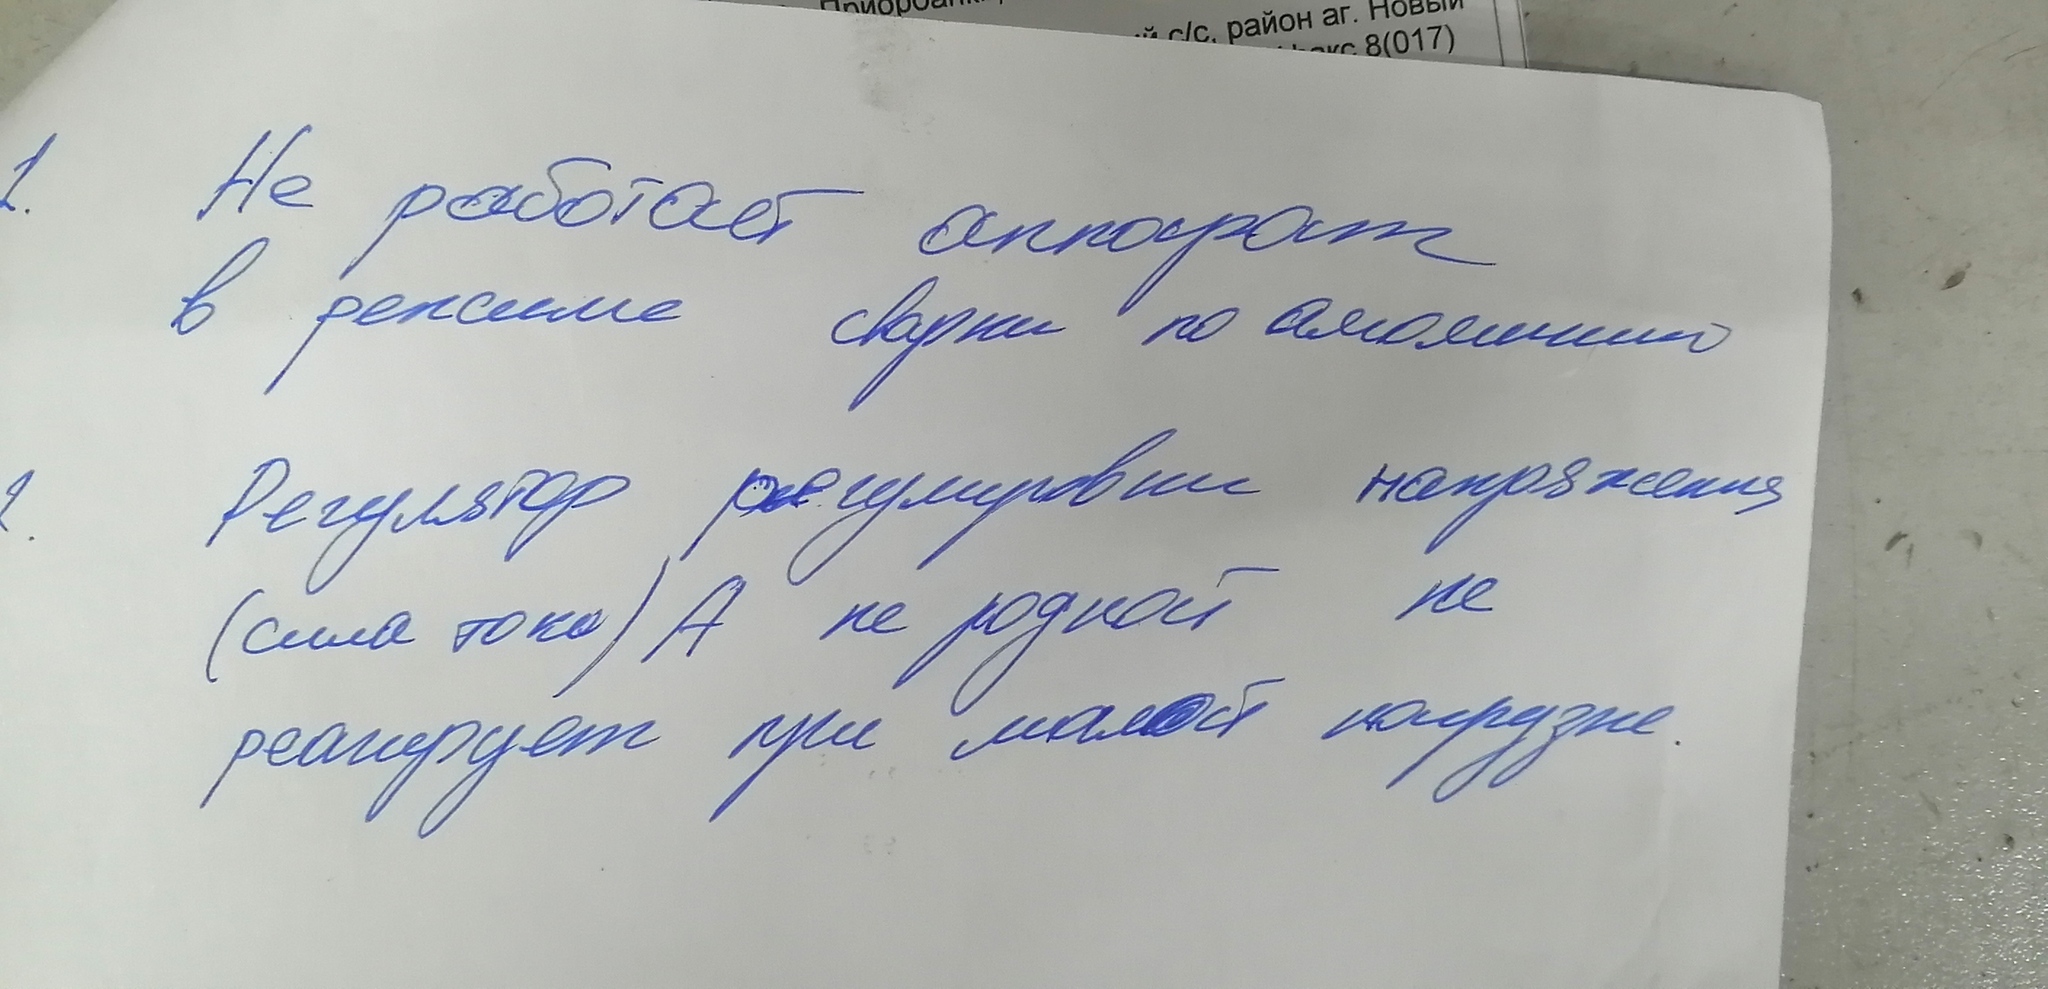 й с/с, район аг. Новый
факс 8(017)
1. Не работает аппарат
в режиме сварки по алюминию
2. Регулятор регулировки напряжения
(сила тока) А не родной не
реагирует при малой нагрузке.